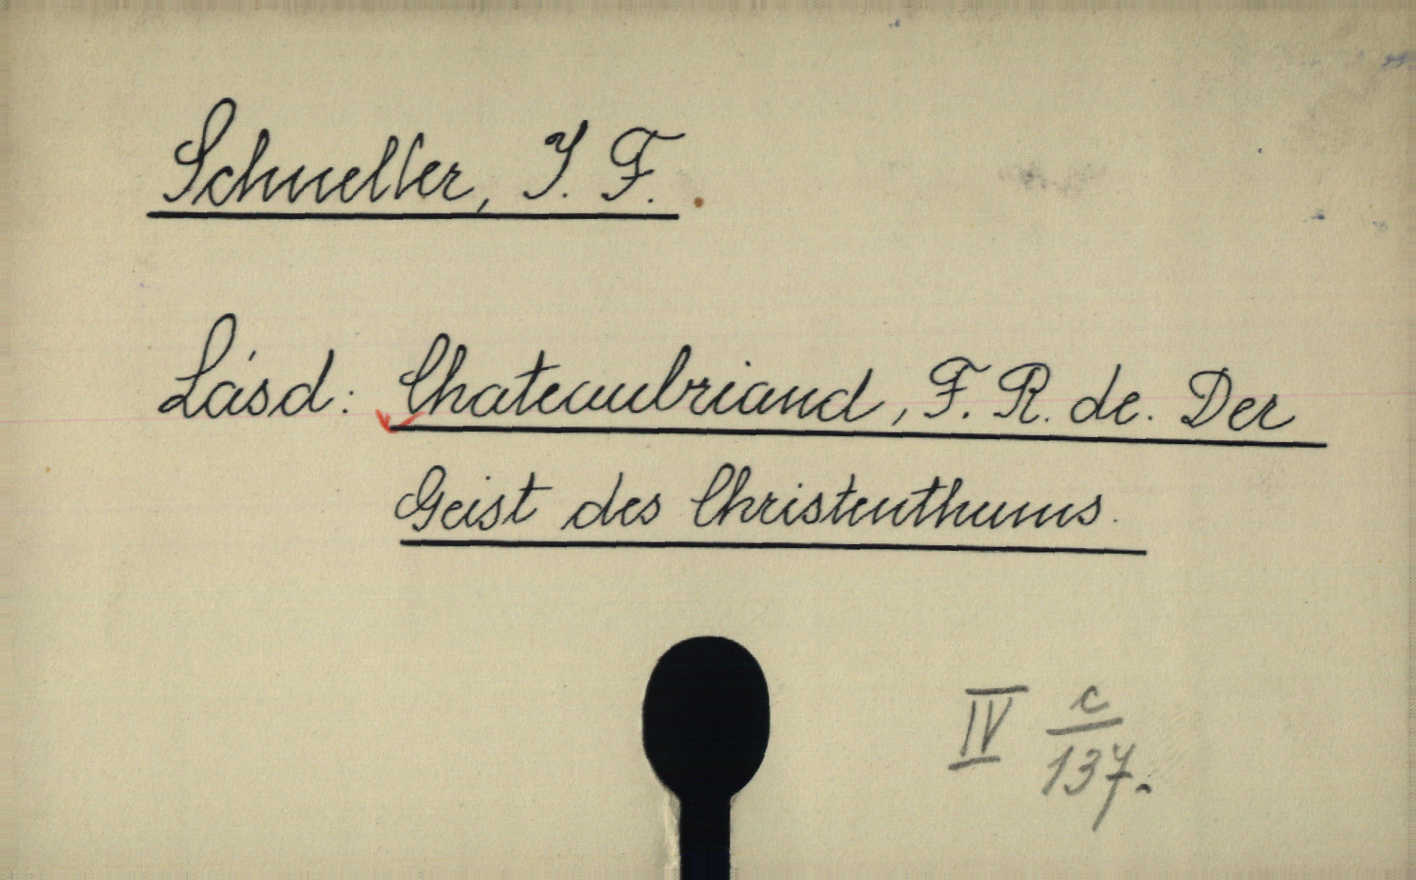 Schneller, J. F.
Lásd: Chateaubriand, F. R. de. Der
Geist des Christenthums.
IV c/137.